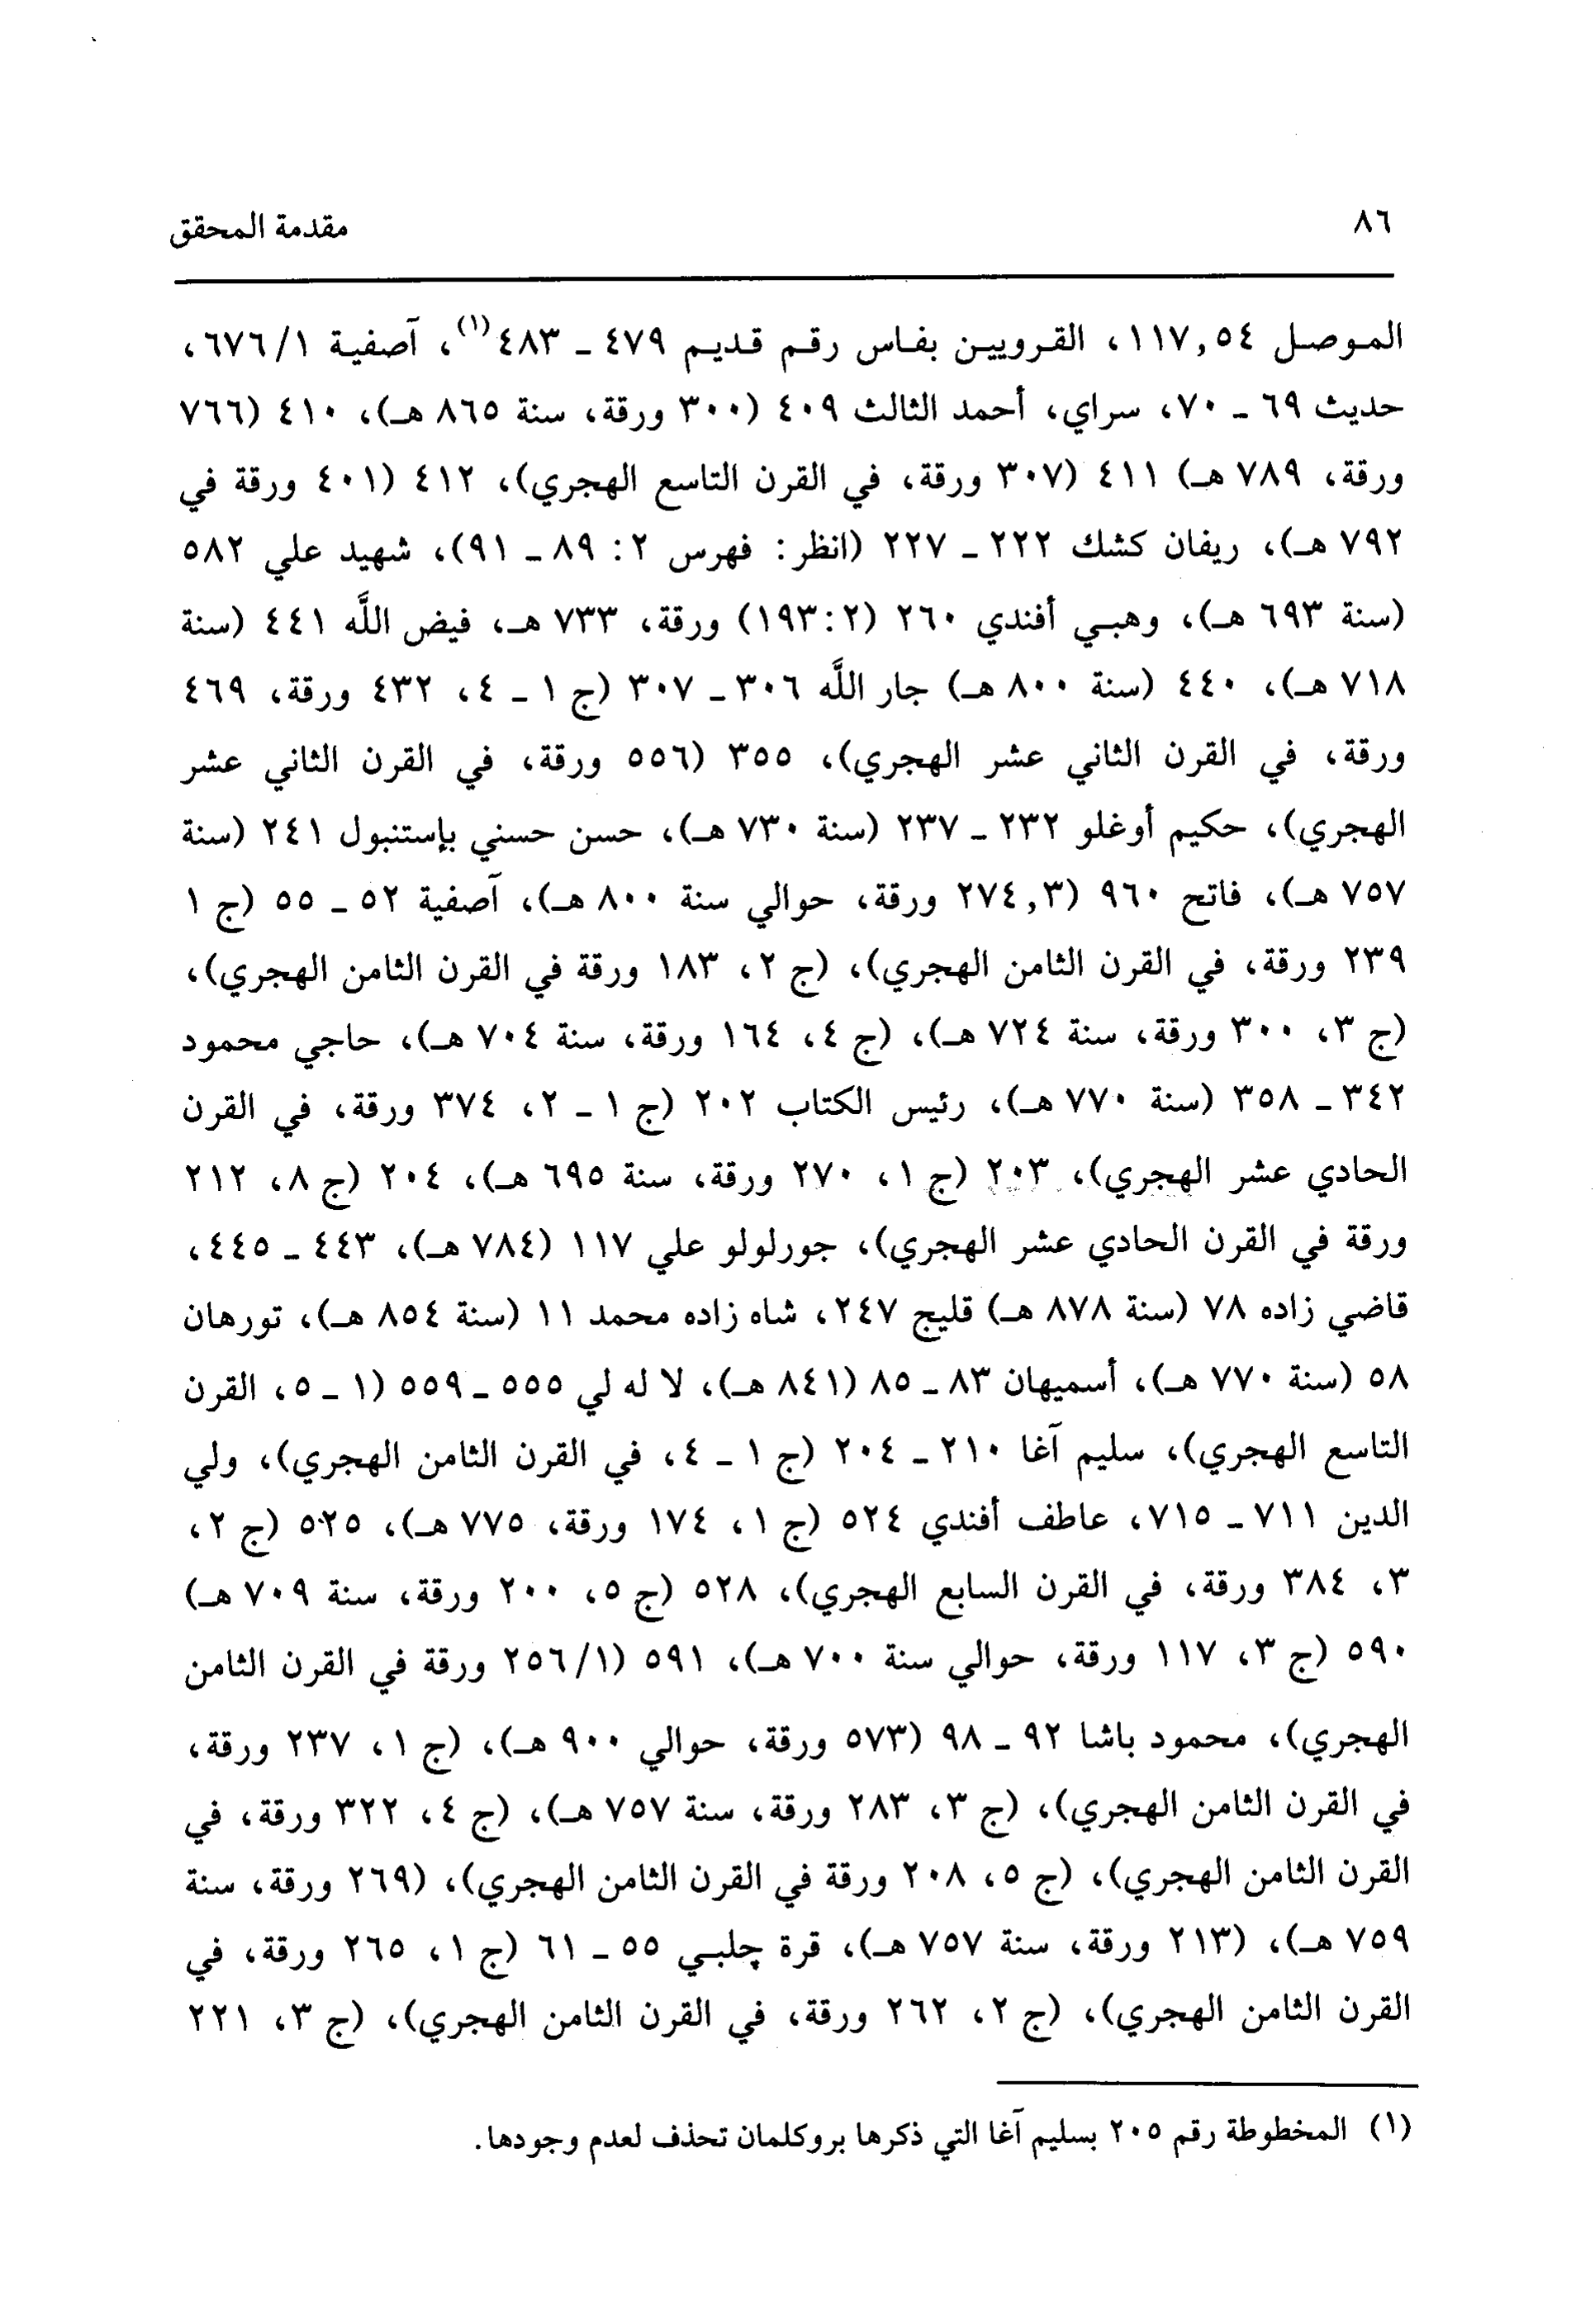 ٨٦
مقدمة المحقق
الموصل ١١٧,٥٤، القرويين بفاس رقم قديم ٤٧٩ ـ ٤٨٣(١)، آصفية ٦٧٦/١،
حديث ٦٩ ـ ٧٠، سراي، أحمد الثالث ٤٠٩ (٣٠٠ ورقة، سنة ٨٦٥ هـ)، ٤١٠ (٧٦٦
ورقة، ٧٨٩ هـ) ٤١١ (٣٠٧ ورقة، في القرن التاسع الهجري)، ٤١٢ (٤٠١ ورقة في
٧٩٢ هـ)، ريفان كشك ٢٢٢ ـ ٢٢٧ (انظر: فهرس ٢: ٨٩ ـ ٩١)، شهيد علي ٥٨٢
(سنة ٦٩٣ هـ)، وهبي أفندي ٢٦٠ (١٩٣:٢) ورقة، ٧٣٣ هـ، فيض اللَّه ٤٤١ (سنة
٧١٨ هـ)، ٤٤٠ (سنة ٨٠٠ هـ) جار اللَّه ٣٠٦ ـ ٣٠٧ (ج ١ ـ ٤، ٤٣٢ ورقة، ٤٦٩
ورقة، في القرن الثاني عشر الهجري)، ٣٥٥ (٥٥٦ ورقة، في القرن الثاني عشر
الهجري)، حكيم أوغلو ٢٣٢ ـ ٢٣٧ (سنة ٧٣٠ هـ)، حسن حسني بإستنبول ٢٤١ (سنة
٧٥٧ هـ)، فاتح ٩٦٠ (٢٧٤,٣ ورقة، حوالي سنة ٨٠٠ هـ)، آصفية ٥٢ ـ ٥٥ (ج ١
٢٣٩ ورقة، في القرن الثامن الهجري)، (ج ٢، ١٨٣ ورقة في القرن الثامن الهجري)،
(ج ٣، ٣٠٠ ورقة، سنة ٧٢٤ هـ)، (ج ٤، ١٦٤ ورقة، سنة ٧٠٤ هـ)، حاجي محمود
٣٤٢ ـ ٣٥٨ (سنة ٧٧٠ هـ)، رئيس الكتاب ٢٠٢ (ج ١ ـ ٢، ٣٧٤ ورقة، في القرن
الحادي عشر الهجري)، ٢٠٣ (ج ١، ٢٧٠ ورقة، سنة ٦٩٥ هـ)، ٢٠٤ (ج ٨، ٢١٢
ورقة في القرن الحادي عشر الهجري)، جورلولو علي ١١٧ (٧٨٤ هـ)، ٤٤٣ ـ ٤٤٥،
قاضي زاده ٧٨ (سنة ٨٧٨ هـ) قليج ٢٤٧، شاه زاده محمد ١١ (سنة ٨٥٤ هـ)، تورهان
٥٨ (سنة ٧٧٠ هـ)، أسميهان ٨٣ ـ ٨٥ (٨٤١ هـ)، لا له لي ٥٥٥ ـ ٥٥٩ (١ ـ ٥، القرن
التاسع الهجري)، سليم آغا ٢١٠ ـ ٢٠٤ (ج ١ ـ ٤، في القرن الثامن الهجري)، ولي
الدين ٧١١ ـ ٧١٥، عاطف أفندي ٥٢٤ (ج ١، ١٧٤ ورقة، ٧٧٥ هـ)، ٥٢٥ (ج ٢،
٣، ٣٨٤ ورقة، في القرن السابع الهجري)، ٥٢٨ (ج ٥، ٢٠٠ ورقة، سنة ٧٠٩ هـ)
٥٩٠ (ج ٣، ١١٧ ورقة، حوالي سنة ٧٠٠ هـ)، ٥٩١ (٢٥٦/١ ورقة في القرن الثامن
الهجري)، محمود باشا ٩٢ ـ ٩٨ (٥٧٣ ورقة، حوالي ٩٠٠ هـ)، (ج ١، ٢٣٧ ورقة،
في القرن الثامن الهجري)، (ج ٣، ٢٨٣ ورقة، سنة ٧٥٧ هـ)، (ج ٤، ٣٢٢ ورقة، في
القرن الثامن الهجري)، (ج ٥، ٢٠٨ ورقة في القرن الثامن الهجري)، (٢٦٩ ورقة، سنة
٧٥٩ هـ)، (٢١٣ ورقة، سنة ٧٥٧ هـ)، قرة چلبي ٥٥ ـ ٦١ (ج ١، ٢٦٥ ورقة، في
القرن الثامن الهجري)، (ج ٢، ٢٦٢ ورقة، في القرن الثامن الهجري)، (ج ٣، ٢٢١
(١) المخطوطة رقم ٢٠٥ بسليم آغا التي ذكرها بروكلمان تحذف لعدم وجودها.